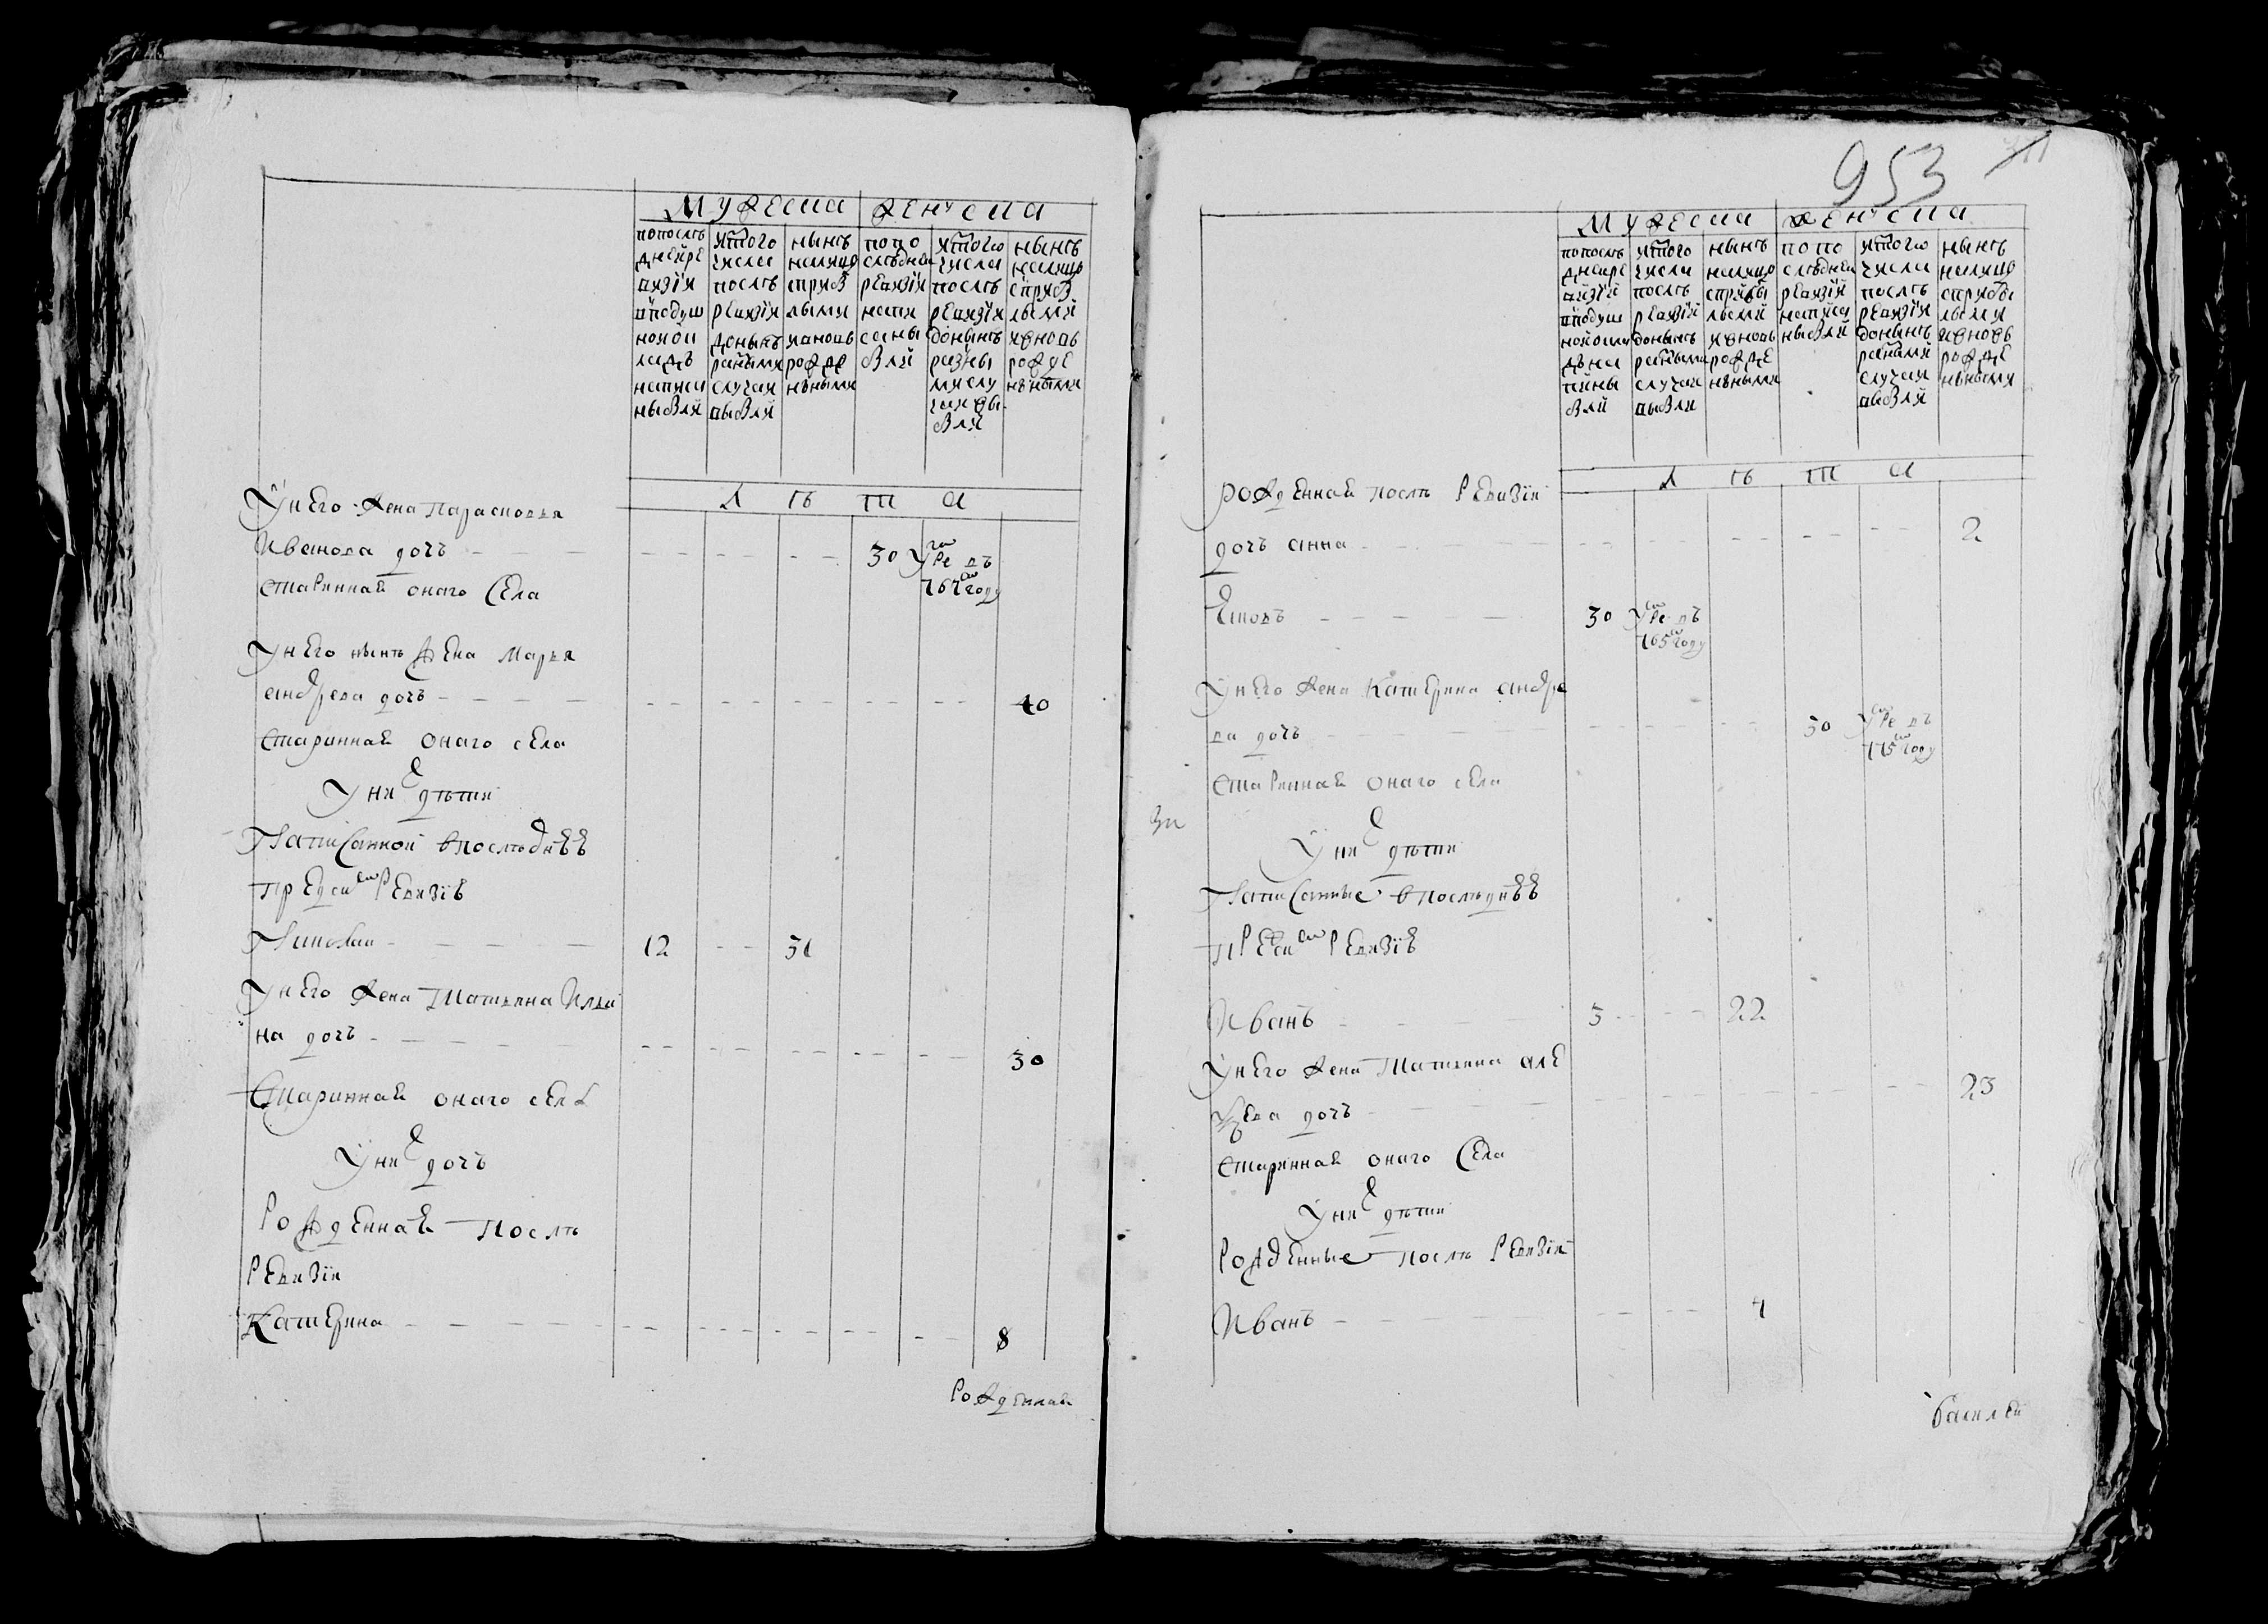 мужеска женска
по послѣ
дней ре
визіи
в подуш
ной ок
ладъ
написа
ны были
ис того
числа
послѣ
ревизіи
донынѣ
разными
случаи
выбыли
нынѣ
на лицо
с прибы
лыми
и вновь
рожде
нъными
по по
слѣдней
ревизіи
напи
саны
были
ис того
числа
послѣ
ревизіи
донынѣ
разны
ми слу
чаи вы
были
нынѣ
на лицо
с прибы
лыми
и вновь
рожде
нъными
л ѣ т а
У него жена Парасковья
Иванова дочь 30 умре въ
старинная онаго села 767м году
У него нынѣ жена Марья
андрева дочь 40
старинная онаго села
У них дѣти
Написанной в последнѣе
пред сим ревизіе
Николаи 12 31
У него жена Татьяна Ильи
на дочь 30
Старинная онаго села
У них дочь
рожденная послѣ
ревизіи
Катерина 8
рожденная
953
мужеска женска
по послѣ
дней ре
визіи
в подуш
ной окла
дъ на
писаны
были
ис того
числа
послѣ
ревизіи
донынѣ
разными
случаи
выбыли
нынѣ
на лицо
с прибы
лыми
и вновь
рожде
нъными
по по
слѣдней
ревизіи
написа
ны были
ис того
числа
послѣ
ревизіи
донынѣ
разными
случаи
выбыли
нынѣ
на лицо
с прибы
лыми
и вновь
рожде
нъными
л ѣ т а
рожденная послѣ ревизіи
дочь анна 2
Яковъ 30 умре въ
765м году
У него жена Катерина андре
ва дочь 50 умре въ
775м году
старинная онаго села
У них дѣти
Написанные в последнѣе
пред сим ревизіе
Иванъ 5 22
У него жена Татьяна але
ѯева дочь 23
старинная онаго села
У них дѣти
рожденные послѣ ревизіи
Иванъ 4
василеи